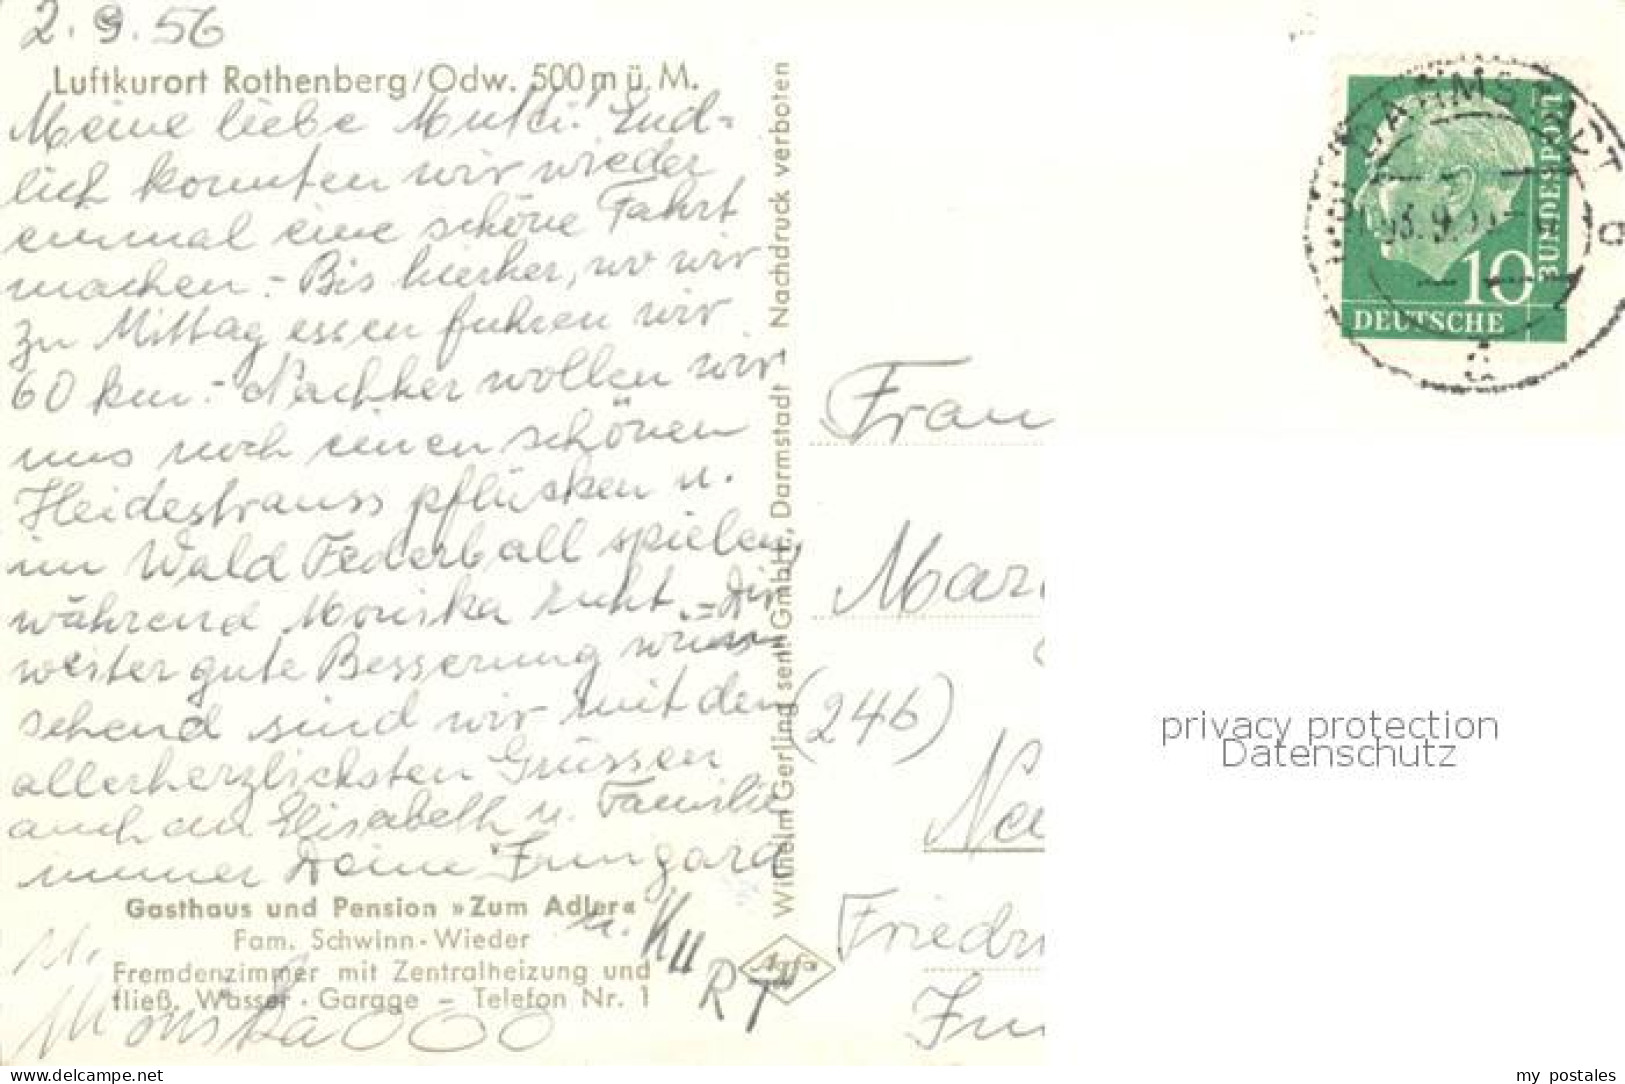 2.9.56
Luftkurort Rothenberg/Odw. 500 m ü. M.
Meine liebe Mutti! End=
lich konnten wir wieder
einmal eine schöne Fahrt
machen.- Bis hierher, wo wir
zu Mittag essen fuhren wir
60 km.- Nachher wollen wir
uns noch einen schönen
Heidestrauss pflücken u.
im Wald Federball spielen,
während Monika ruht.= Dir
weiter gute Besserung wün
schend sind wir mit den
allerherzlichsten Grüssen
auch an Elisabeth u. Familie
immer Deine Irmgard
Gasthaus und Pension »Zum Adler«
Fam. Schwinn-Wieder
Fremdenzimmer mit Zentralheizung und
fließ. Wasser · Garage – Telefon Nr. 1
u.
u.
Monika OOO
Wilhelm Gerling sen. GmbH., Darmstadt Nachdruck verboten
Agfa
DARMSTADT
DEUTSCHE
BUNDESPOST
10
Frau
Mar
(246)
Ne
Friedr
privacy protection
Datenschutz
www.delcampe.net
my_postales